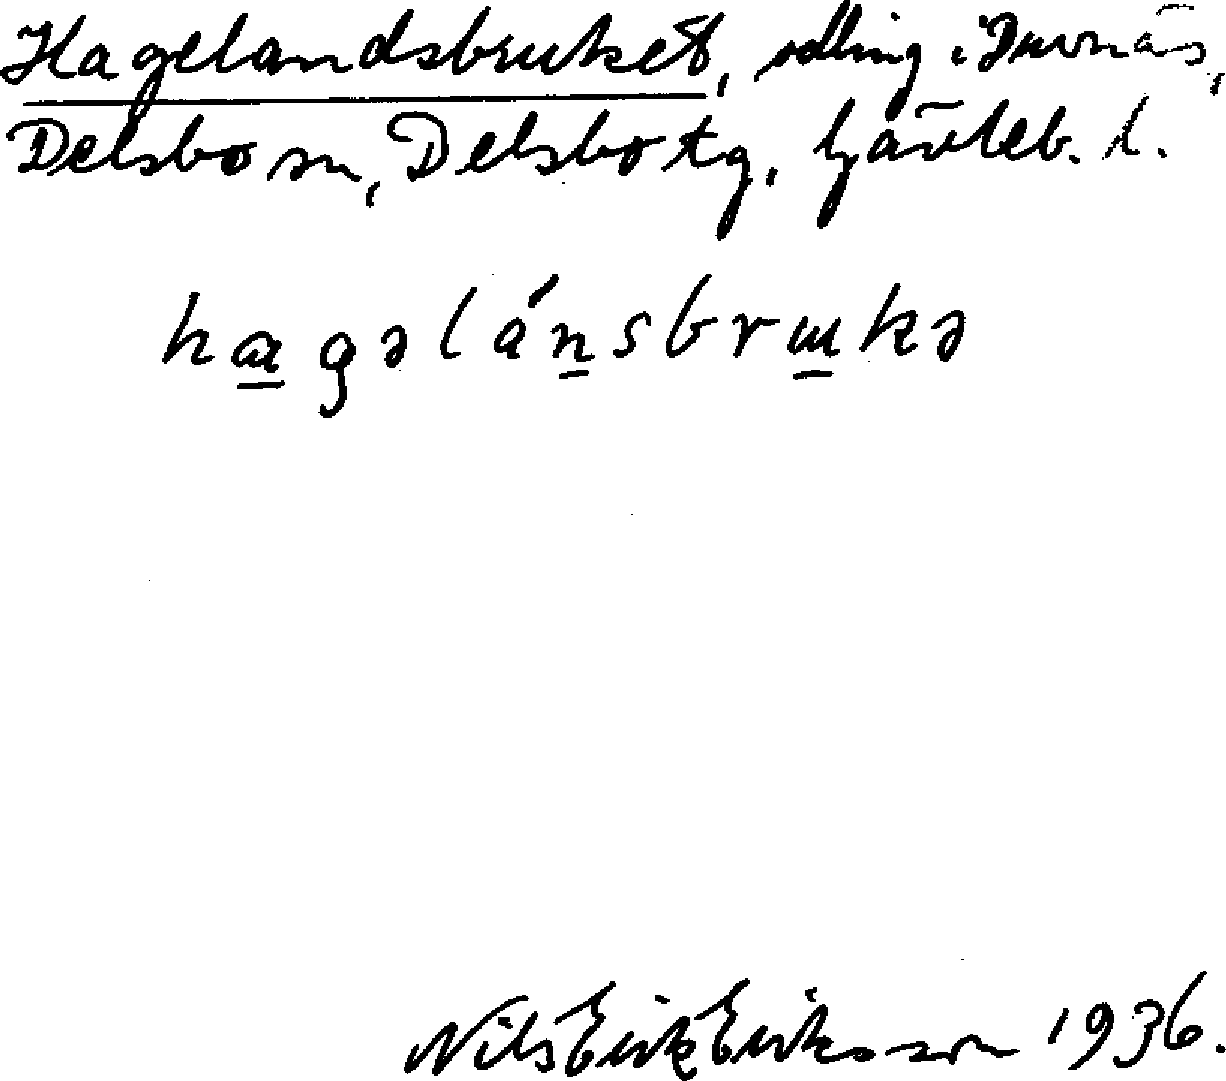 Hagelandsbruket, odling i Duvnäs,
Delsbo sn, Delsbo tg, Gävleb. l.
hagəlánsbrukə
Nils Erik Eriksson 1936.